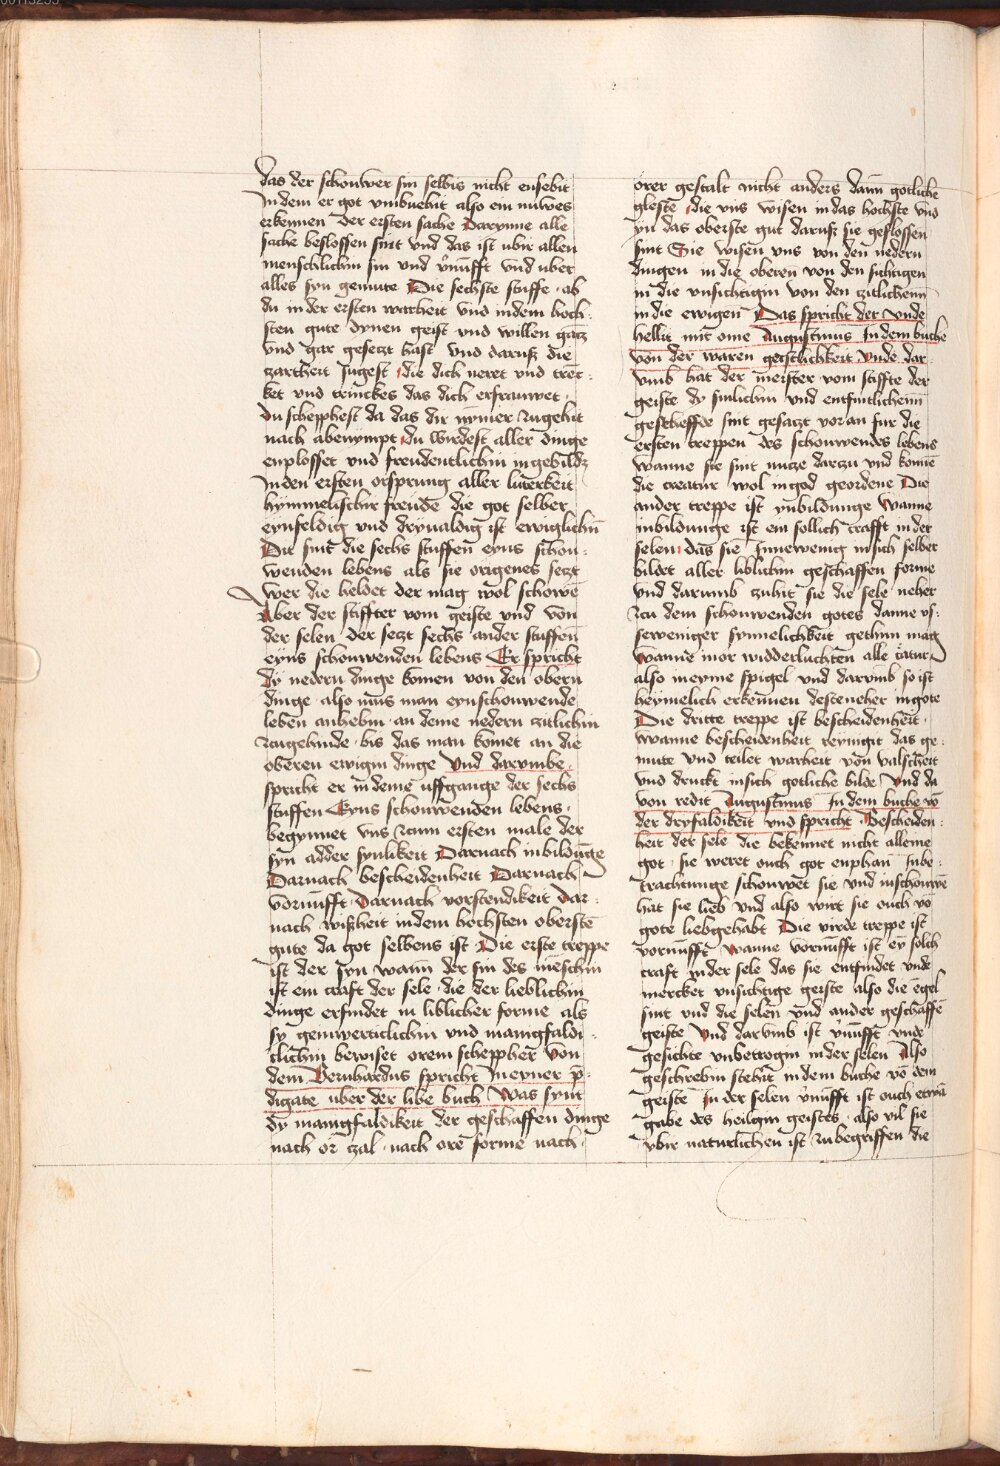 das der schouwer sin selbis nicht ensebit
In dem er got vmbuehit also ein nuwes
erkennen der ersten sache Darynne alle
sache beslossen sint vnd das ist vbir allen
menschlichin sin vnd vornufft vnd uber
alles syn gemute Die sechste stuffe · ab
du in der ersten warheit vnd in dem hoch ·
sten gute dynen geist vnd willen gatz
vnd gar gesetzt hast vnd daruß die
zartheit sugest die dich neret vnd tren ·
ket vnd trinckes das dich erfrauwet ·
du schepphest da das dir nymer zugehit
nach abenympt du wirdest aller dinge
enplosset vnd freudentlichin ingebildz
In den ersten orsprung aller luterkeit
hymmelischir freude die got selber
eynfeldig vnd dryualdig ist ewiglichin
Dis sint die sechs stuffen eyns schou ·
wenden lebens als sie origenes setzt
wer die heldet der mag wol schowe
Aber der stiffter vom geiste vnd von
der selen der setzt sechs ander stuffen
eyns schouwenden lebens Er spricht
dy nedern dinge komen von den obern
dinge also mus man eyn schouwende
leben anhebin an deme nedern zitlichin
zugehinde · bis das man komet an die
oberen ewigin dinge vnd darvmbe
spricht er in deme vffgange der sechs
stuffen Eyns schouwenden lebens ·
begynnet vns zcum ersten male der
syn adder synlikeit Darnach inbildunge
Darnach bescheidenheit Darnach
vornufft · Darnach vorstendikeit dar ·
nach wißheit in dem hochsten oberste
gute da got selbens ist Die erste treppe
ist der syn wann der sin des menschin
ist ein craft der sele · die der lieblichin
dinge erfindet in liblicher forme als
sy geinwerticlichin vnd manigfaldi ·
clichin bewiset orem scheppher von
dem Bernhardus spricht In eyner p ·
digate uber der libe buch Was synt
dy manigfaldikeit der geschaffen dinge
nach or czal · nach ore forme nach ·
orer gestalt nicht anders dann gotliche
gleste die vns wisen in das hochste vnd
yn das oberste gut daruß sie geflossen
sint Sie wisen vns von den nedern
dingen in die oberen von den sichtigen
in die vnsichtigin von den zitlichenn
in die ewigen Das spricht der vnde
hellit mit ome Augustinus In dem buche
von der waren geistlichkeit Vnde dar ·
vmb hat der meister vom stiffte der
geiste dy sinlichin vnd entfintlichenn
gescheffde sint gesatzt voran fur die
ersten treppen des schouwendes lebens
wanne sie sint nutze dartzu vnd komē
die creatur wol in god geordene Die
ander treppe ist ynbildunge wanne
inbildunge ist ein sollich crafft in der
selen das sie Innewenig in sich selber
bildet aller liblichin geschaffen forme
vnd darumb zuhit sie die sele neher
zcu dem schouwenden gotes danne vs ·
seweniger synnelichkeit gethun mag
wanne inor widderluchten alle catur
also in eyme spigel vnd darvmb so ist
heymelich erkennen deste neher in gote
Die dritte treppe ist bescheidenheit ·
wanne bescheidenheit reynigit das ge ·
mute vnd teilet warheit von valscheit
vnd druckt in sich gotliche bilde vnd da
von redit Augustinus In dem buche vō
der dryfaldikeit vnd spricht Bescheiden ·
heit der sele die bekennet nicht alleine
got · sie weret ouch got enphan Inbe ·
trachtunge schouwet sie vnd inschouwē
hat sie lieb vnd also wirt sie ouch vō
gote liebgehabt Die virde treppe ist
vornufft wanne vornufft ist ey solch
craft in der sele das sie entfindet vnde
mercket vnsichtige geiste also die egel
sint vnd die selen vnd ander geschaffē
geiste Vnd darvmb ist vnufft vnde
gesichte vnbetrogin in der selen Also
geschrebin stehit in dem buche vō dem
geiste In der selen vnufft ist ouch etwa
gabe des heilgin geistes · also vil sie
vbir naturlichen ist zubegriffen die